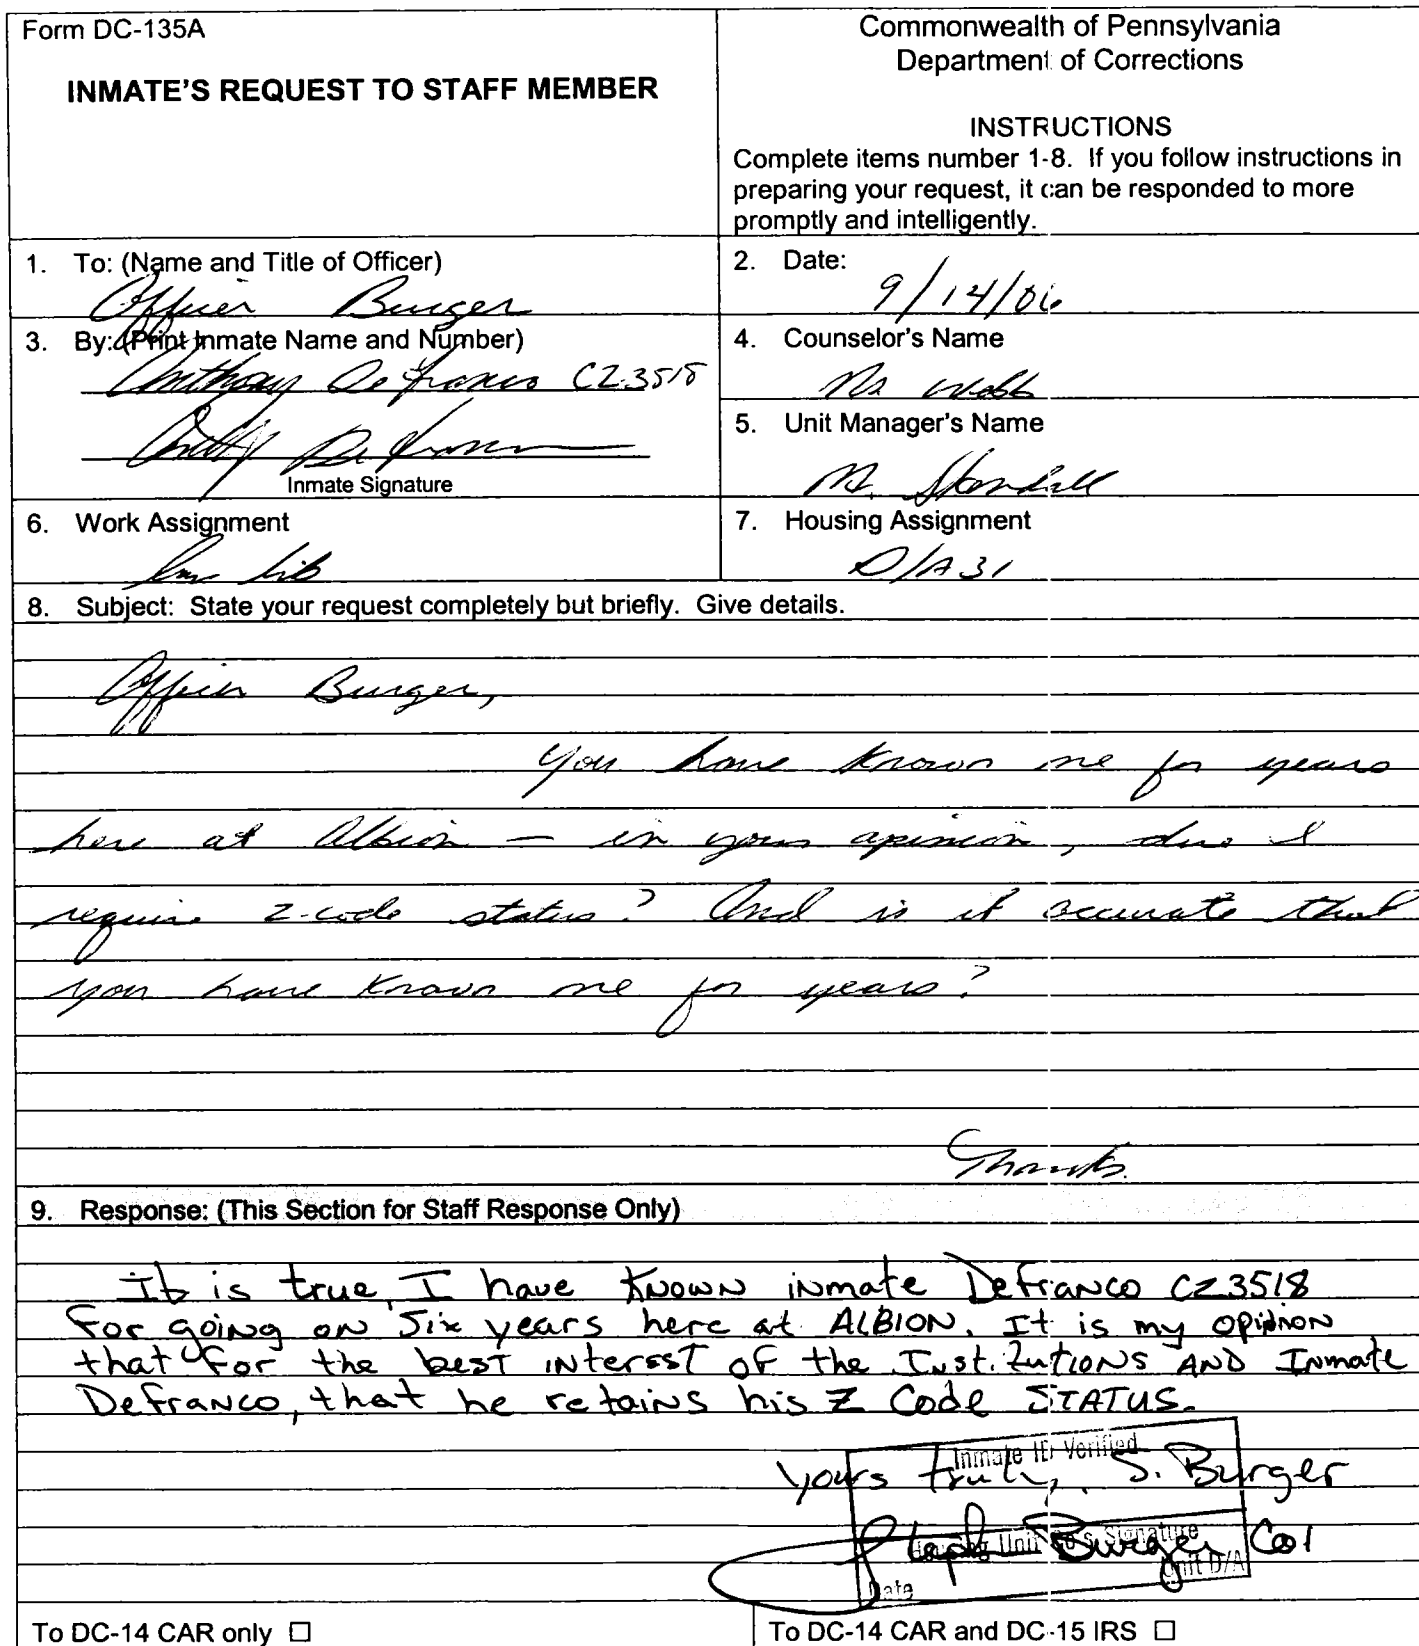 Form DC-135A
INMATE'S REQUEST TO STAFF MEMBER
Commonwealth of Pennsylvania
Department of Corrections
INSTRUCTIONS
Complete items number 1-8. If you follow instructions in
preparing your request, it can be responded to more
promptly and intelligently.
1. To: (Name and Title of Officer)
Officer Burger
2. Date:
9/14/06
3. By: (Print Inmate Name and Number)
Anthony DeFranco CZ3518
Inmate Signature
4. Counselor's Name
Mr. Webb
5. Unit Manager's Name
M.
6. Work Assignment
Lib
7. Housing Assignment
D/A 31
8. Subject: State your request completely but briefly. Give details.
Officer Burger,
You have known me for years
here at Albion – in your opinion, does I
require z-code status? And is it accurate that
you have known me for years?
Thanks.
9. Response: (This Section for Staff Response Only)
It is true, I have known inmate Defranco CZ3518
for going on Six years here at ALBION. It is my opinion
that for the best interest of the Institutions AND Inmate
Defranco, that he retains his Z Code STATUS.
Inmate ID Verified
yours truly, S. Burger
Burger CO1
Housing Unit CO's Signature
Unit D/A
Date
To DC-14 CAR only ☐
To DC-14 CAR and DC-15 IRS ☐